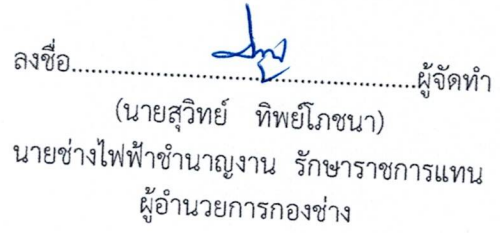 ลงชื่อ..................................................ผู้จัดทำ
(นายสุวิทย์ ทิพย์โภชนา)
นายช่างไฟฟ้าชำนาญงาน รักษาราชการแทน
ผู้อำนวยการกองช่าง